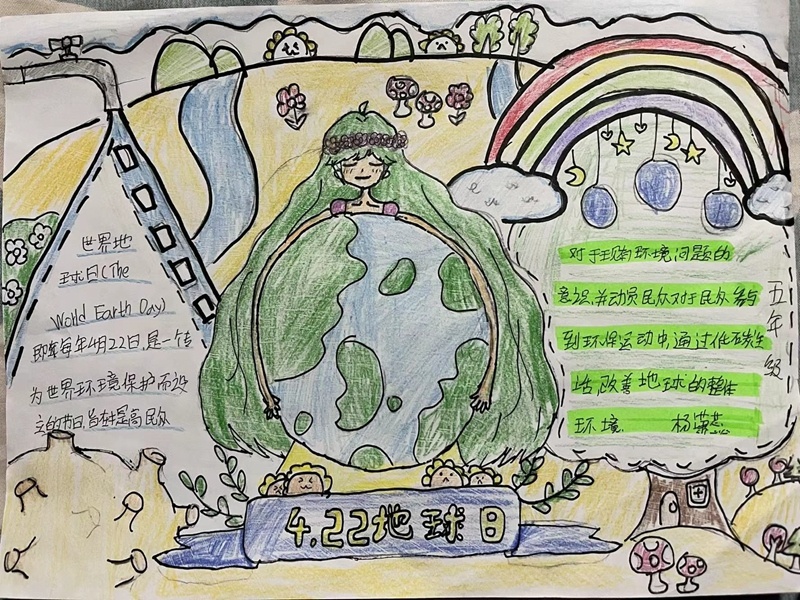 世界地
球日(The
World Earth Day)
即每年4月22日,是一个专
为世界环境保护而设
立的节日,旨在提高民众
对于现有环境问题的
意识,并动员民众对于民众参与
到环保运动中,通过低碳生
活,改善地球的整体
环境
五年级
4.22地球日